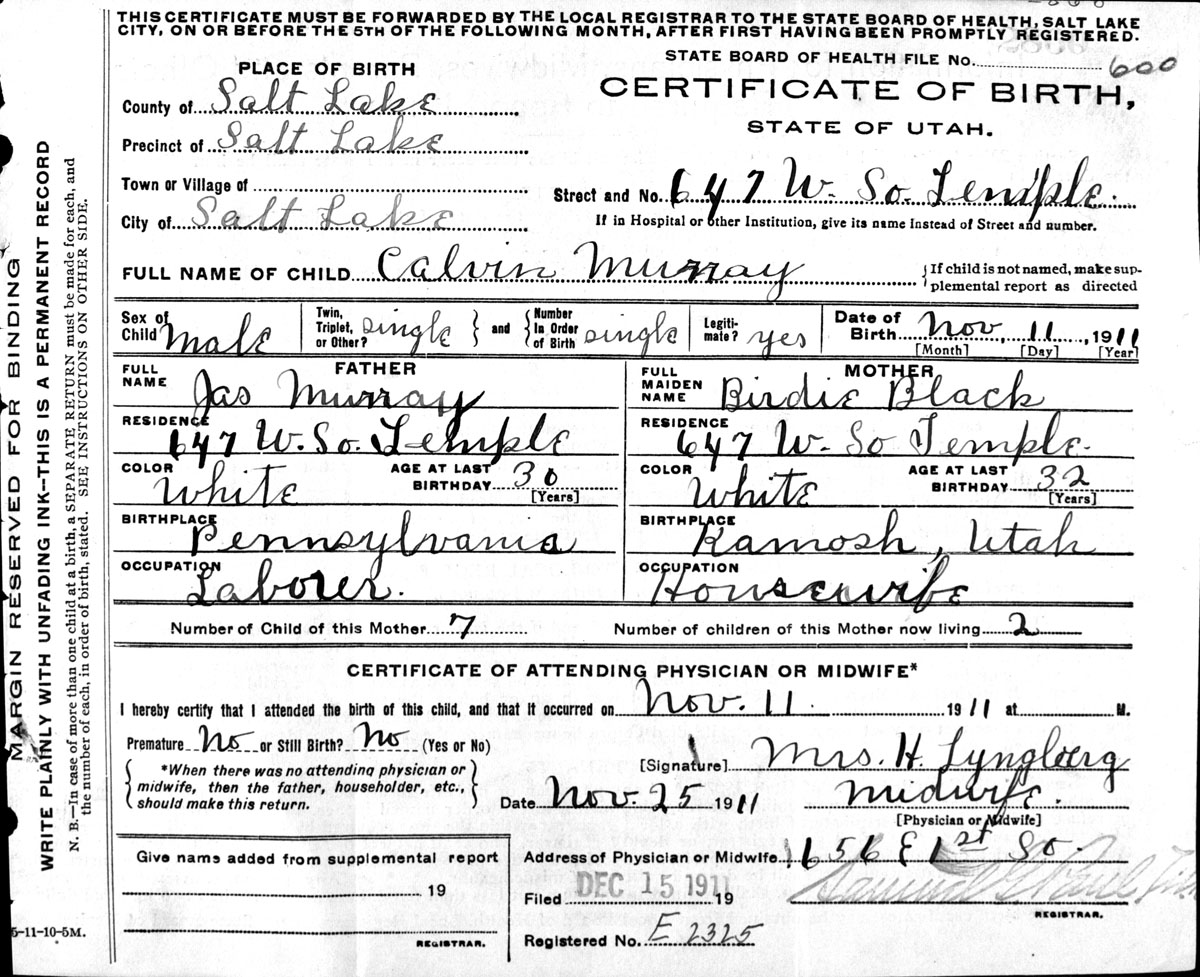 THIS CERTIFICATE MUST BE FORWARDED BY THE LOCAL REGISTRAR TO THE STATE BOARD OF HEALTH, SALT LAKE
CITY, ON OR BEFORE THE 5TH OF THE FOLLOWING MONTH, AFTER FIRST HAVING BEEN PROMPTLY REGISTERED.
STATE BOARD OF HEALTH FILE No. 600
PLACE OF BIRTH
CERTIFICATE OF BIRTH,
STATE OF UTAH.
County of Salt Lake
Precinct of Salt Lake
Town or Village of
Street and No. 647 W. So. Temple
City of Salt Lake
If in Hospital or other Institution, give its name instead of Street and number.
FULL NAME OF CHILD Calvin Murray
{ If child is not named, make sup-
plemental report as directed
Sex of Child Male
Twin, Triplet, or Other? single } and { Number In Order of Birth single
Legiti-mate? yes
Date of Birth Nov. 11, 1911
[Month] [Day] [Year]
FATHER
FULL NAME Jas Murray
RESIDENCE 647 W. So. Temple
COLOR White AGE AT LAST BIRTHDAY 30 [Years]
BIRTHPLACE Pennsylvania
OCCUPATION Laborer.
MOTHER
FULL MAIDEN NAME Birdie Black
RESIDENCE 647 W. So Temple.
COLOR White AGE AT LAST BIRTHDAY 32 [Years]
BIRTHPLACE Kamosh, Utah
OCCUPATION Housewife
Number of Child of this Mother 7 Number of children of this Mother now living 2
CERTIFICATE OF ATTENDING PHYSICIAN OR MIDWIFE*
I hereby certify that I attended the birth of this child, and that it occurred on Nov. 11 1911 at M.
Premature No or Still Birth? No (Yes or No)
{ *When there was no attending physician or
midwife, then the father, householder, etc.,
should make this return. }
[Signature] Mrs. H. Lyngberg
Date Nov. 25 1911 Midwife.
[Physician or Midwife]
Give name added from supplemental report
19
REGISTRAR.
Address of Physician or Midwife 656 E 1st So.
Filed DEC 15 1911 19
REGISTRAR.
Registered No. E 2325
5-11-10-5M.
MARGIN RESERVED FOR BINDING
WRITE PLAINLY WITH UNFADING INK—THIS IS A PERMANENT RECORD
N. B.—In case of more than one child at a birth, a SEPARATE RETURN must be made for each, and
the number of each, in order of birth, stated. SEE INSTRUCTIONS ON OTHER SIDE.